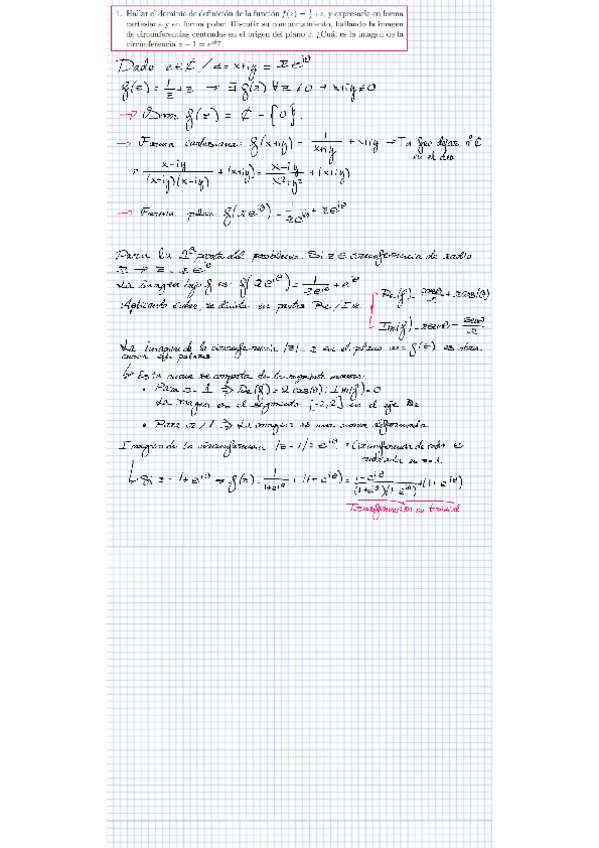 1. Hallar el dominio de definición de la función f(z) = 1/z + z, y expresarla en forma
cartesiana y en forma polar. Discutir su comportamiento, hallando la imagen
de circunferencias centradas en el origen del plano z. ¿Cuál es la imagen de la
circunferencia z − 1 = e^{iθ}?
Dado z ∈ ℂ / z = x+iy = r e^{iθ}
f(z) = 1/z + z → ∃ f(z) ∀ z ≠ 0 → x+iy ≠ 0
→ Dom f(z) = ℂ − {0}.
→ Forma cartesiana: f(x+iy) = 1/(x+iy) + x+iy → 
(x−iy)/((x−iy)(x−iy)) + (x+iy) = (x−iy)/(x²+y²) + (x+iy)
→ Forma polar f(r e^{iθ}) = 1/(r e^{iθ}) + r e^{iθ}
Para la 2ª parte del problema. Si z ∈ circunferencia de radio
r → z = r e^{iθ}
La imagen bajo f es: f(r e^{iθ}) = 1/(r e^{iθ}) + e^{iθ}
Aplicando Euler, se divide en partes Re / Im
Re(f) = cosθ/r + r cos(θ)
Im(f) = r senθ − senθ/r
La imagen de la circunferencia |z| = r en el plano w = f(z) es otra
curva
↳ Esta curva se comporta de la siguiente manera:
• Para r = 1 ⇒ Re(f) = 2 cos(θ); Im(f) = 0
La imagen es el segmento [−2,2] en el eje Re
• Para r ≠ 1 ⇒ La imagen es una curva deformada
Imagen de la circunferencia |z−1| = e^{iθ} = Circunferencia de radio
centrada en z=1.
↳ Si z = 1+e^{iθ} → f(z) = 1/(1+e^{iθ}) + (1+e^{iθ}) = (1−e^{iθ})/((1+e^{iθ})(1−e^{iθ})) + (1+e^{iθ})
Transformación no trivial